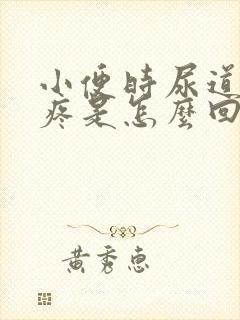 小便時尿道
疼是怎麼回
黃秀惠